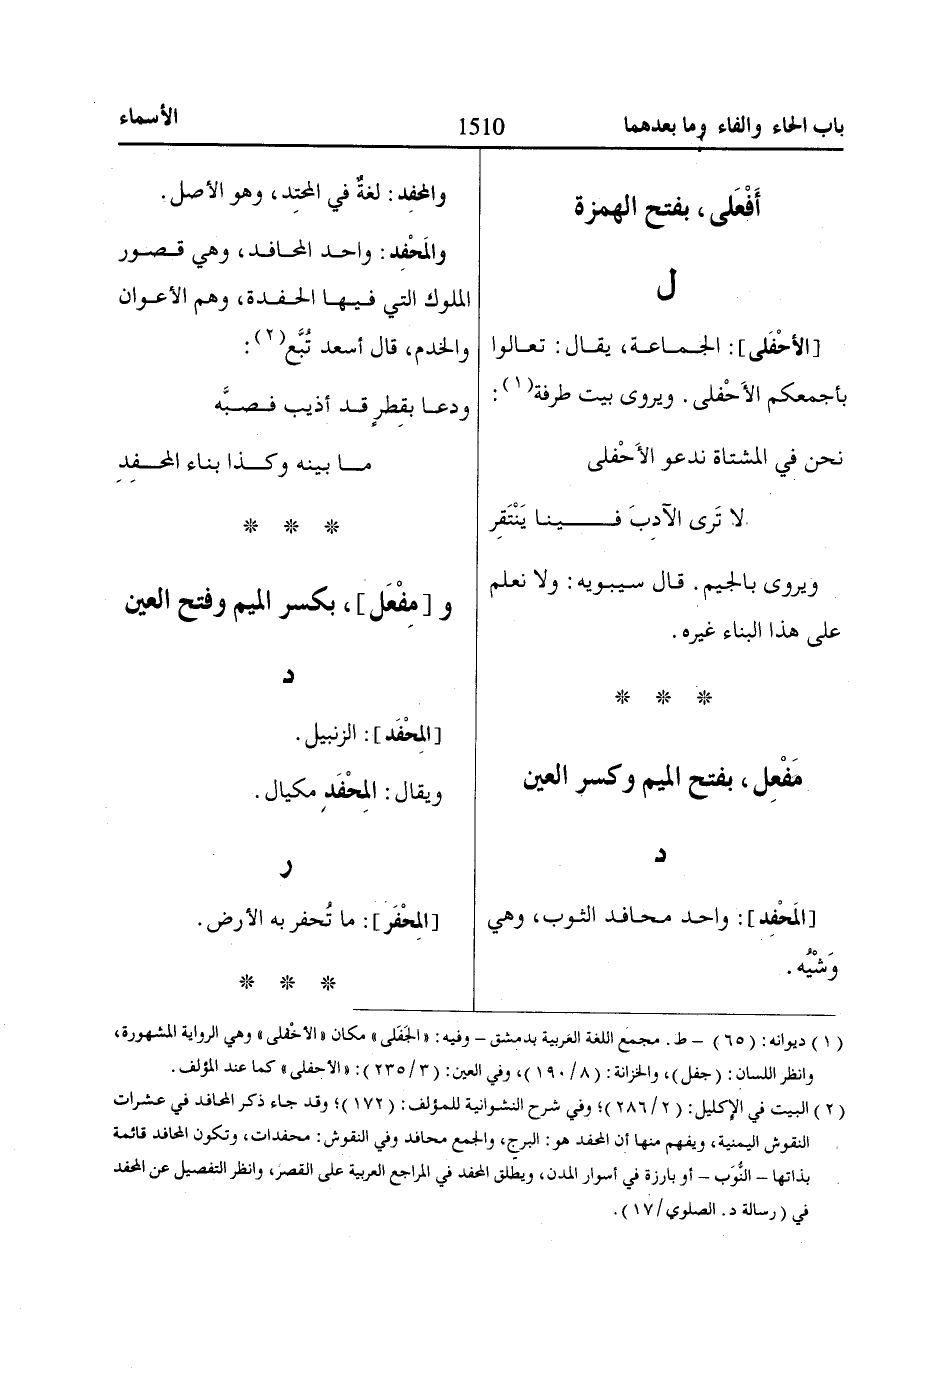 باب الحاء والفاء وما بعدهما
1510
الأسماء
أَفْعَلى، بفتح الهمزة
ل
[الأَحْفَلى]: الجماعة، يقال: تعالوا
بأجمعكم الأَحْفلى. ويروى بيت طرفة(١):
نحن في المشتاة ندعو الأَحْفلى
لا تَرى الآدِبَ فينا يَنْتَقِر
ويروى بالجيم. قال سيبويه: ولا نعلم
على هذا البناء غيره.
* * *
مَفْعِل، بفتح الميم وكسر العين
د
[المَحْفِد]: واحد محافد الثوب، وهي
وَشْيُه.
والمحفِد: لغةٌ في المحتِد، وهو الأصل.
والمَحْفِد: واحد المحافد، وهي قصور
الملوك التي فيها الحفدة، وهم الأعوان
والخدم، قال أسعد تُبَّع(٢):
ودعا بقطرٍ قد أذيب فصبَّه
ما بينه وكذا بناء المحفِدِ
* * *
و [مِفْعَل]، بكسر الميم وفتح العين
د
[المِحْفَد]: الزنبيل.
ويقال: المِحْفَد مكيال.
ر
[المِحْفَر]: ما تُحفر به الأرض.
* * *
(١) ديوانه: (٦٥) – ط. مجمع اللغة العربية بدمشق – وفيه: «الجَفَلى» مكان «الأحْفلى» وهي الرواية المشهورة،
وانظر اللسان: (جفل)، والخزانة: (٨/١٩٠)، وفي العين: (٣/٢٣٥): «الأحفلى» كما عند المؤلف.
(٢) البيت في الإكليل: (٢/٢٨٦)؛ وفي شرح النشوانية للمؤلف: (١٧٢)؛ وقد جاء ذكر المحافد في عشرات
النقوش اليمنية، ويفهم منها أن المحفد هو: البرج، والجمع محافد وفي النقوش: محفدات، وتكون المحافد قائمة
بذاتها – النُّوَب – أو بارزة في أسوار المدن، ويطلق المحفد في المراجع العربية على القصر، وانظر التفصيل عن المحفد
في (رسالة د. الصلوي/١٧).